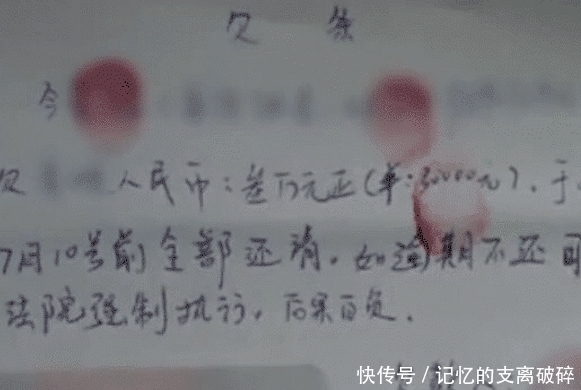 欠 条
今
欠 人民币：叁万元正（￥:30000元），于
7月10号前全部还清。如逾期不还 可
法院强制执行，后果自负。
快传号／记忆的支离破碎